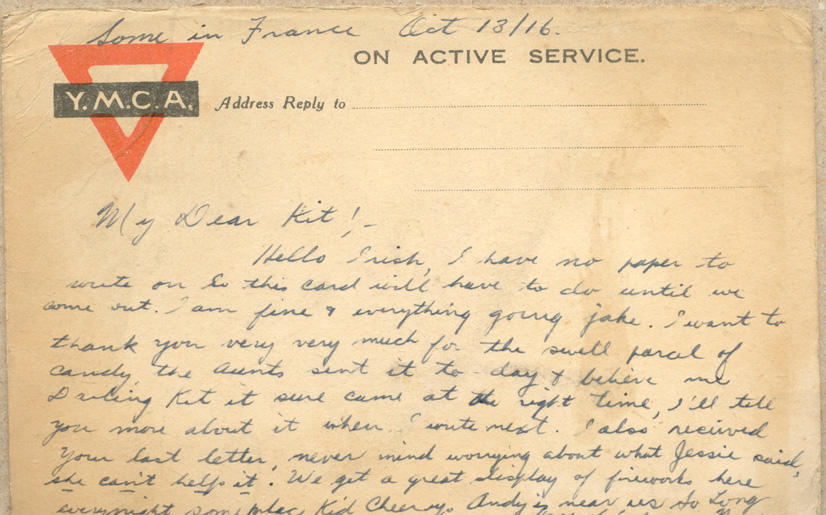 Some in France Oct 13/16.
ON ACTIVE SERVICE.
Y.M.C.A.
Address Reply to
My Dear Kit!-
Hello Irish, I have no paper to
write on So this card will have to do until we
come out. I am fine & everything going jake. I want to
thank you very very much for the swell parcel of
candy the Aunts sent it to day & believe me
Darling Kit it sure came at the right time, I'll tell
you more about it when I write next. I also received
your last letter, never mind worrying about what Jessie said,
she can't help it. We get a great display of fireworks here
everynight some place Kid Cheeryo Andy is near us So Long